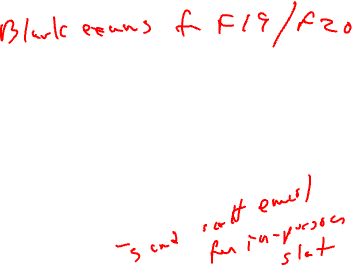 Blank exams for F19/F20
- send Matt email
for in-person
slot